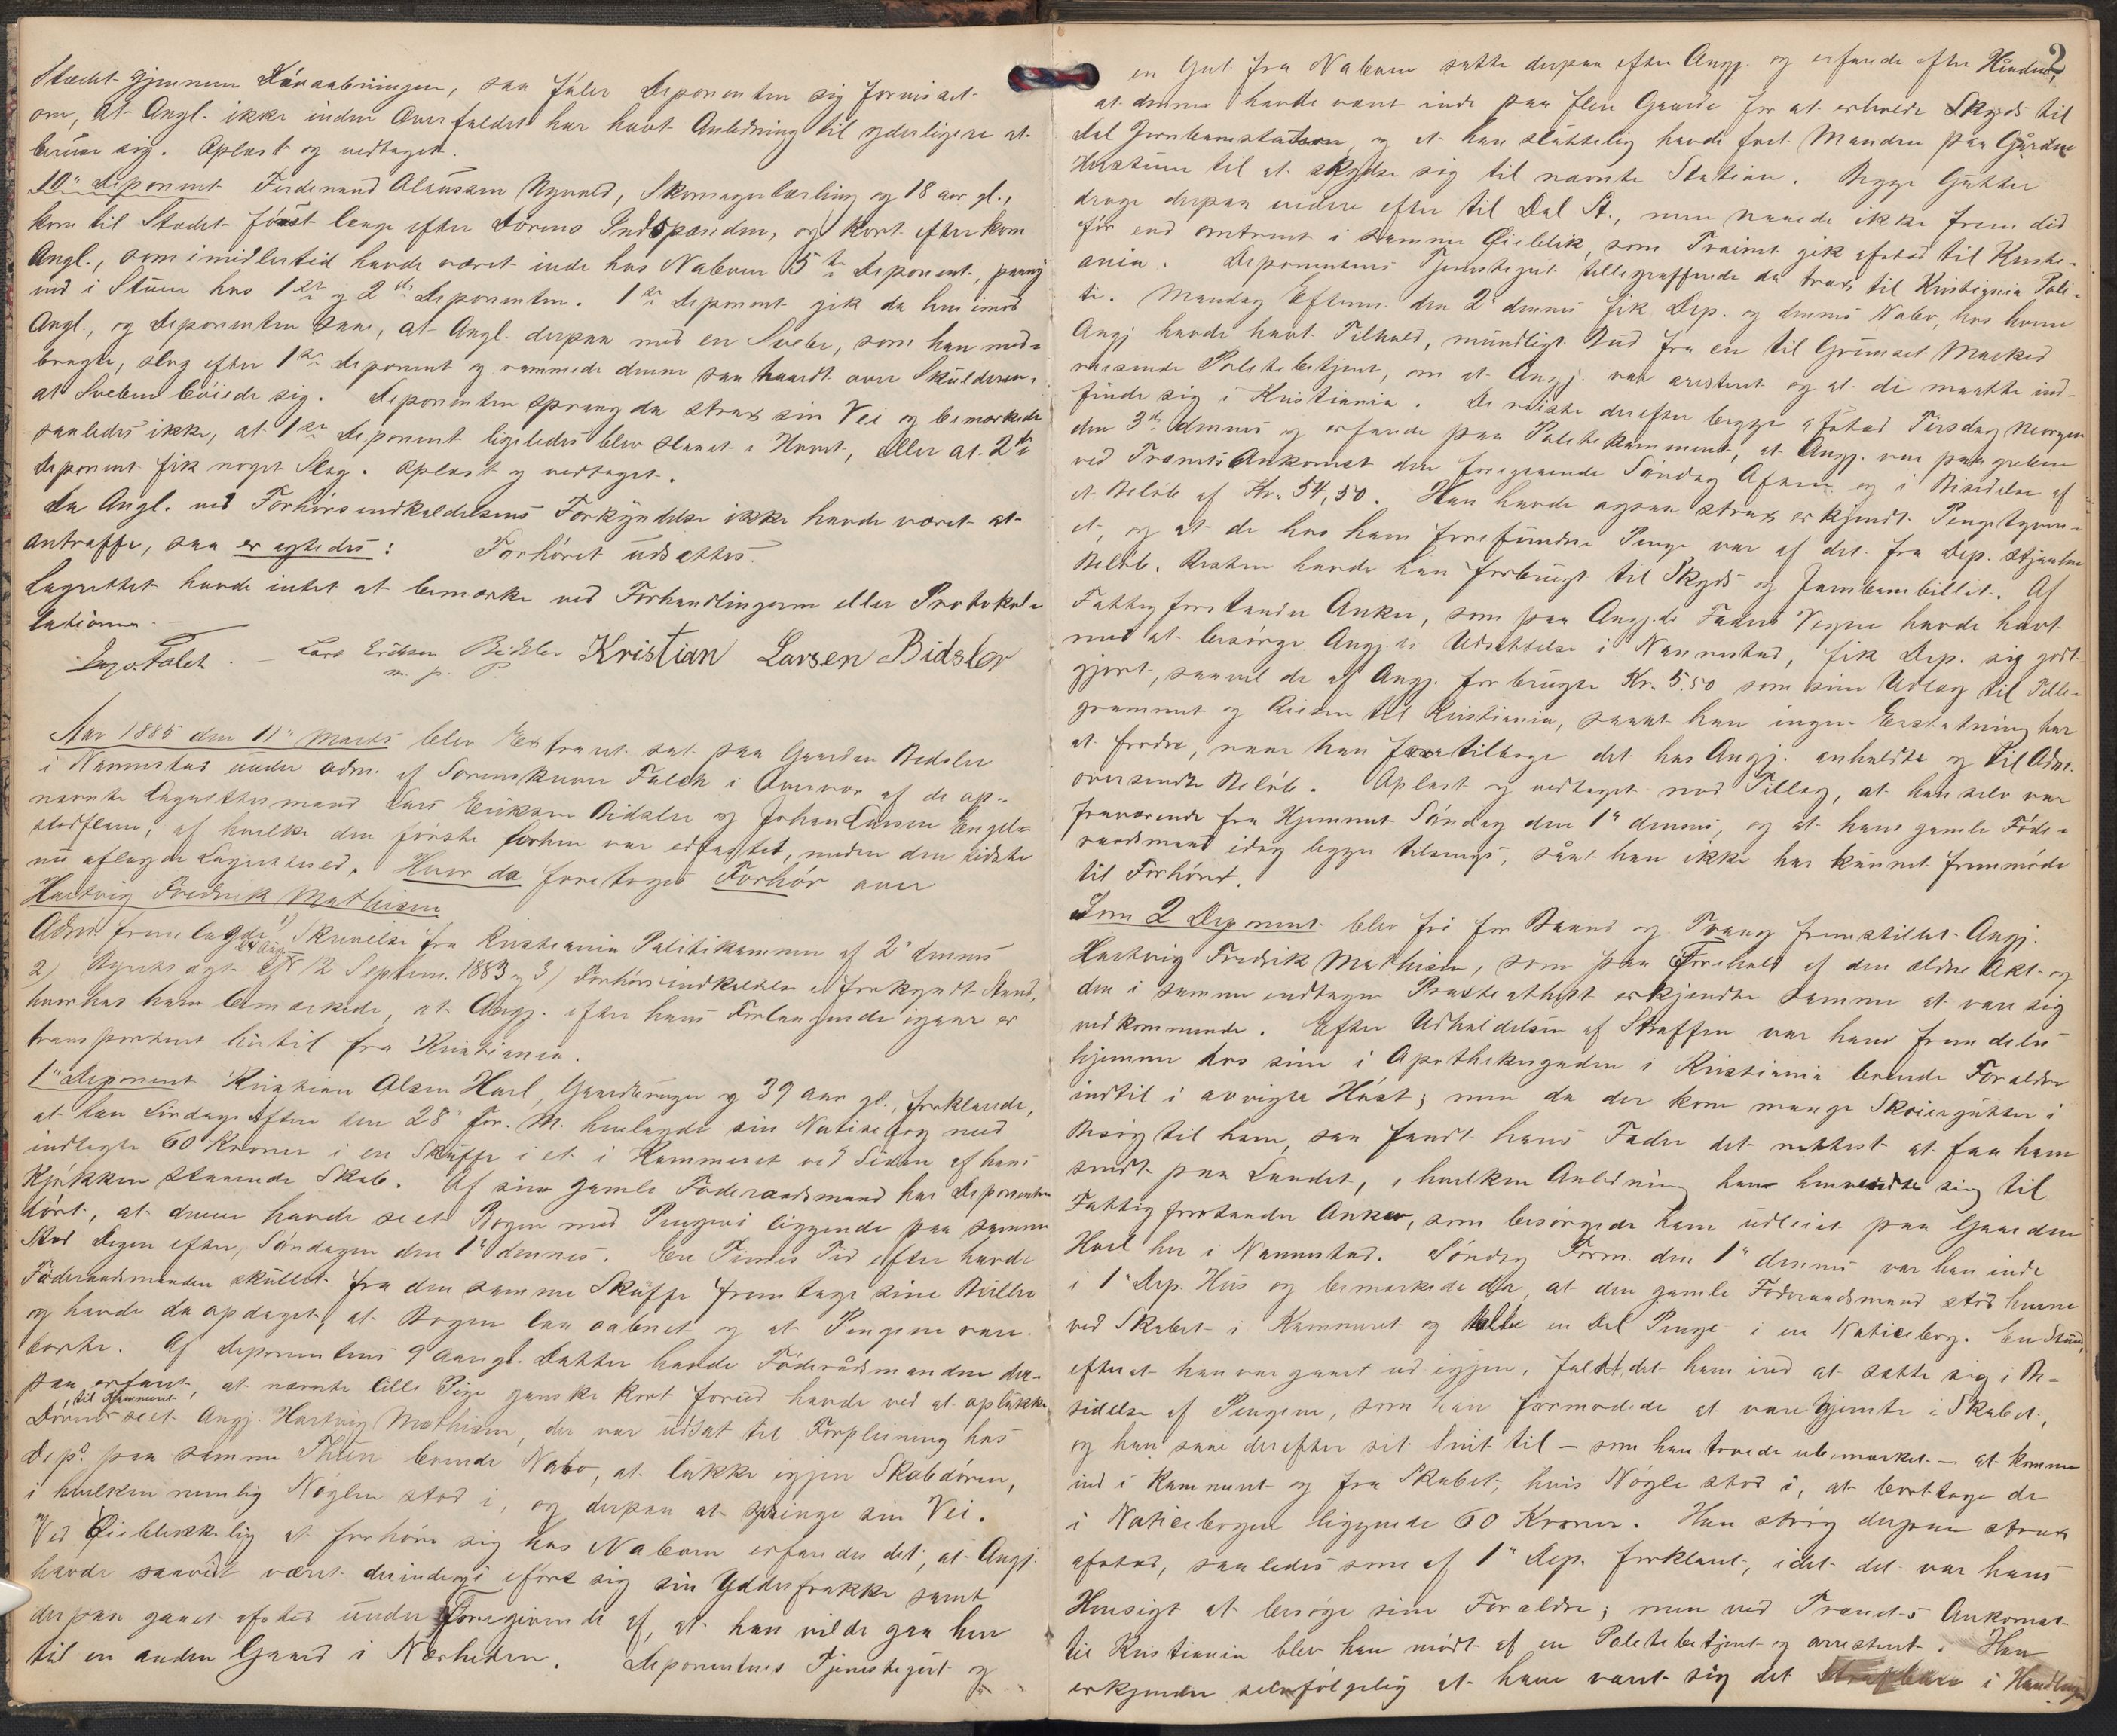 Stædet gjennem Døraabningen, saa føler Deponenten sig forvisset
om, at Angl. ikke inden Overfaldet har havt Anledning til yderligere at
beruse sig. Oplæst og vedtaget.
10de Deponent Ferdinand Olaussen Nyvold, Skomagerlærling og 18 aar gl.,
kom til Stædet først længe efter Dørens Indspænden, og kort efter kom
Angl., som imidlertid havde været inde hos Naboen 5te Deponent, paany
ind i Stuen hos 1ste og 2den Deponenten. 1ste Deponent gik da hen imod
Angl., og Deponenten saae, at Angl. derpaa med en Svebe, som han med-
bragte, slog efter 1ste Deponent og rammede denne saa haardt over Skulderen,
at Sveben bøiede sig. Deponenten sprang da strax sin Vei og bemærkede
saaledes ikke, at 1ste Deponent ligeledes blev slaaet i Hovet, eller at 2de
Deponent fik noget Slag. Oplæst og vedtaget.
Da Angl. ved Forhørsindkaldelsens Forkyndelse ikke havde været at
antræffe, saa er agtedes: Forhøret udsattes.
Lagrettet havde intet at bemærke ved Forhandlingerne eller Protokol-
lationen.
Falch. Lars Eriksen Bidsler Kristian Larsen Bidsler
m. p. P.
Aar 1885 den 11te Marts blev Extraret sat paa Gaarden Bedsler
i Nannestad under Adm. af Sorenskriver Falch i Overvær af de op-
nævnte Lagrettesmænd Lars Eriksen Bidsler og Johan Larsen Engel-
stadflaen, af hvilke den første forhen var edfæstet, meden den sidste
nu aflagde Lagrettesed. Hvor da foretoges Forhør over
Hartvig Fredrik Mathisen
Adm. fremlagde 1) Skrivelse fra Kristiania Politikammer af 2de dennes
2) Byretsagt af 12 Septem. 1883 og 3) Forhørsindkaldelse i forkyndt Stand,
hvorhos han bemærkede, at Angj. efter hans Forlangende igaar er
transporteret hertil fra Kristiania.
1ste Deponent Kristian Olsen Hæl, Gaardbruger og 39 Aar gl., forklarede,
at han Lørdags Aften den 28de For. M. henlagde sin Noticebog med
indlagte 60 Kroner i en Skuffe i et i Kammeret ved Siden af hans
Kjøkken staaende Skab. Af sin gamle Føderaadsmand har Deponenten
hørt, at denne havde seet Bogen med Pengene i liggende paa samme
Sted Dagen efter, Søndagen den 1ste dennes. En Times Tid efter havde
Føderaadsmanden skullet fra den samme Skuffe fremtage sine Briller
og havde da opdaget, at Bogen laa aabnet og at Pengene vare
borte. Af Deponentens 9 Aar gl. Datter havde Føderådsmanden der-
paa erfaret, at nævnte lille Pige ganske kort forud havde ved at oplukke
til Kammeret
Døren seet Angj. Hartvig Mathisen, der var udsat til Forpleining hos
Dep.s paa samme Thun boende Nabo, at lukke igjen Skabdøren,
i hvilken nemlig Nøglen stod i, og derpaa at springe sin Vei.
Ved Øieblikkelig at forhøre sig hos Naboen erfaredes det, at Angj.
havde saavidt været derinde og iført sig sin Yderfrakke samt
derpaa gaaet afsted under Foregivende af, at han vilde gaa hen
til en anden Gaard i Nærheden. Deponentens Tjenestegut og
2
en Gut fra Naboen satte derpaa efter Angj. og erfarede efter Haanden
at denne havde været inde paa flere Gaarde for at erholde Skyds til
Dal Jernbanestation og at han sluttelig havde faaet Manden paa Gården
til at skydse sig til nævnte Station. Begge Gutter
droge derpaa videre efter til Dal St., men naaede ikke frem did
før end omtrent i samme Øieblik, som Trainet gik afsted til Kristi-
ania. Deponentens Tjenestegut tellegrafferede da strax til Kristiania Poli-
ti. Mandag Efterm. den 2de dennes fik Dep. og dennes Nabo, hos hvem
Angj havde havt Tilhold, mundligt Bud fra en til Grimset Marked
reisende Politibetjent, om at Angj. var aresteret og at de maatte ind-
finde sig i Kristiania. De reiste derefter begge afsted Tirsdag Morgen
den 3de dennes og erfarede paa Politikammeret, at Angj. var paagreben
ved Trainets Ankomst den foregaaende Søndag Aften og i Besiddelse af
et Beløb af Kr. 54,50. Han havde ogsaa strax erkjendt Pengetyveri-
et, og at de hos ham forefundne Penge var af det fra Dep. stjaalne
Beløb. Resten havde han forbrugt til Skyds og Jernbanebillet. Af
Fattigforstander Anker, som paa Angj.s Faders Vegne havde havt
med at besørge Angj.s Udsættelse i Nannestad, fik Dep. sig godt-
gjort, saavel de af Angj. forbrugte Kr. 5.50 som sine Udlæg til Telle-
grammet og Reisen til Kristiania, saaat han ingen Erstatning har
at fordre, naar han faar tilbage det hos Angj. anholdte og til Adm.
oversendte Beløb. Oplæst og vedtaget med Tillæg, at han selv var
fraværende fra Hjemmet Søndag den 1ste dennes, og at hans gamle Føde-
raadsmand idag ligger tilsengs, såat han ikke har kunnet fremmøde
til Forhøret.
Som 2 Deponent blev fri for Baand og Tvang fremstillet Angj.
Hartvig Fredrik Mathisen, som paa Forehold af den ældre Akt og
den i samme indtagne Præsteattest erkjendte samme at være sig
vedkommende. Efter Udholdelsen af Straffen var han fremdeles
hjemme hos sine i Apothekergaden i Kristiania boende Forældre
indtil i avvigte Høst; men da der kom mange Skøiergutter i
Besøg til ham, saa fandt hans Fader det rettest at faa ham
sendt paa Landet, i hvilken Anledning han henvendte sig til
Fattigforstander Anker, som besørgede ham udleiet paa Gaarden
Hæl her i Nannestad. Søndag Form. den 1ste dennes var han inde
i 1ste Dep. Hus og bemærkede da, at den gamle Føderaadsmand stod henne
ved Skabet i Kammeret og talte en Del Penge i en Noticebog. En Stund,
efterat han var gaaet ud igjen, faldt det ham ind at sætte sig i Be-
siddelse af Pengene, som han formodede at være gjemte i Skabet,
og han saae derefter sit Snit til – som han troede ubemærket – at komme
ind i Kammeret og fra Skabet, hvis Nøgle stod i, at borttage de
i Noticebogen liggende 60 Kroner. Han strøg derpaa strax
afsted, saaledes som af 1ste Dep. forklaret, idet det var hans
Hensigt at besøge sine Forældre; men ved Trainets Ankomst
til Kristiania blev han mødt af en Politibetjent og arresteret. Han
erkjender selvfølgelig at have været sig det Strafbare i Handlingen